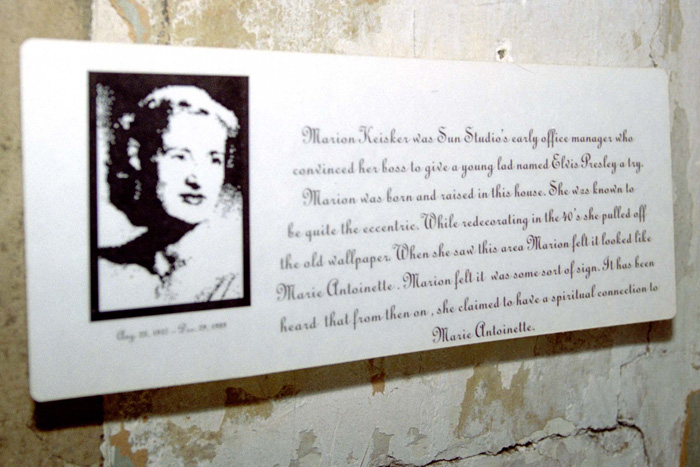 Marion Keisker was Sun Studio's early office manager who
convinced her boss to give a young lad named Elvis Presley a try.
Marion was born and raised in this house. She was known to
be quite the eccentric. While redecorating in the 40's she pulled off
the old wallpaper. When she saw this area Marion felt it looked like
Marie Antoinette. Marion felt it was some sort of sign. It has been
heard that from then on, she claimed to have a spiritual connection to
Marie Antoinette.
Dec. 29, 1989